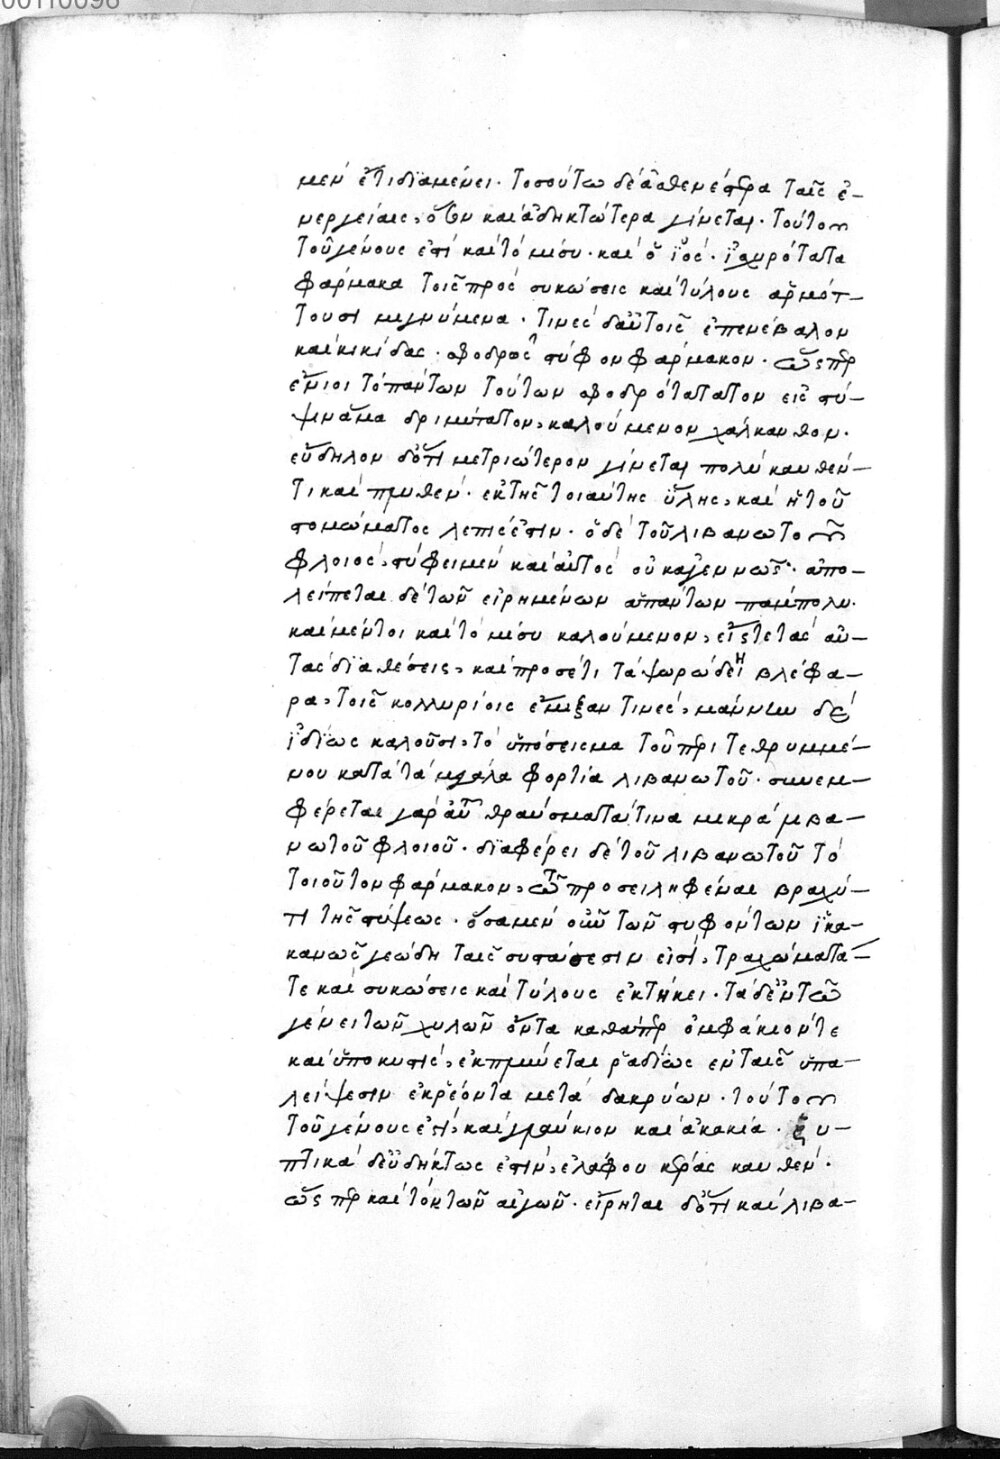 00110098
μὲν ἔτι διαμένει. τοσούτω δὲ ἀσθενέστερα ταῖς ἐ-
νεργείαις, ὅθεν καὶ ἀδηκτώτερα γίνεται. τούτου
τοῦ γένους ἐστὶ καὶ τὸ μίσυ. καὶ ὁ ἰός. ἰσχυρότατα
φάρμακα τοῖς πρὸς συκώσεις καὶ τύλους ἁρμότ-
τουσι μιγνύμενα. τινὲς δ' αὐτοῖς ἐπενέβαλον
καὶ κικίδας. σφοδρῶς στύφον φάρμακον. ὥσπερ
ἔνιοι τὸ πάντων τούτων σφοδρότατατον εἰς σύ-
ψιν ἅμα δριμύτατον, καλούμενον χάλκανθον.
εὔδηλον δ' ὅτι μετριώτερον γίνεται πολὺ καυθέν-
τι καὶ πλυθέν. ἐκ τῆς τοιαύτης ὕλης, καὶ ἡ τοῦ
στομώματος λεπίς ἐστιν. ὁ δὲ τοῦ λιβανωτοῦ
φλοιὸς, στύφει μὲν καὶ αὐτὸς οὐκ ἀγεννῶς. ἀπο-
λείπεται δὲ τῶν εἰρημένων ἁπάντων πάμπολυ.
καὶ μέντοι καὶ τὸ μίσυ καλούμενον, εἴς τε τὰς αὐ-
τὰς διαθέσεις, καὶ προσέτι τὰ ψωρώδη βλέφα-
ρα, τοῖς κολλυρίοις ἔμιξαν τινὲς, μάνναν δὲ
ἰδίως καλοῦσι, τὸ ὑπόσεισμα τοῦ περιτεθρυμμέ-
νου κατὰ τὰ μεγάλα φορτία λιβανωτοῦ. συνεμ-
φέρεται γὰρ αὐτῷ θραύσματά τινα μικρὰ λιβα-
νωτοῦ φλοιοῦ. διαφέρει δὲ τοῦ λιβανωτοῦ τὸ
τοιοῦτον φάρμακον, τῷ προσειληφέναι βραχύ-
τι τῆς στύψεως. ὅσα μὲν οὖν τῶν στυφόντων ἱκα-
κανῶς γεώδη ταῖς συστάσεσιν εἰσὶ, τραχώματά-
τε καὶ συκώσεις καὶ τύλους ἐκτήκει. τὰ δ' ἐν τῷ
γένει τῶν χυλῶν ὄντα καθάπερ ὀμφάκιόν τε
καὶ ὑποκυστὶς, ἐκπλύνεται ῥαδίως ἐν ταῖς ὑπα-
λείψεσιν ἐκρέοντα μετὰ δακρύων. τούτου
τοῦ γένους ἐστὶ, καὶ γλαύκιον καὶ ἀκακία. ξυ-
πτικὰ δ' εὐδήκτως ἐστὶν, ἐλάφου κέρας καυθέν.
ὥσπερ καὶ τὸ τῶν αἰγῶν. εἴρηται δ' ὅτι καὶ λιβα-